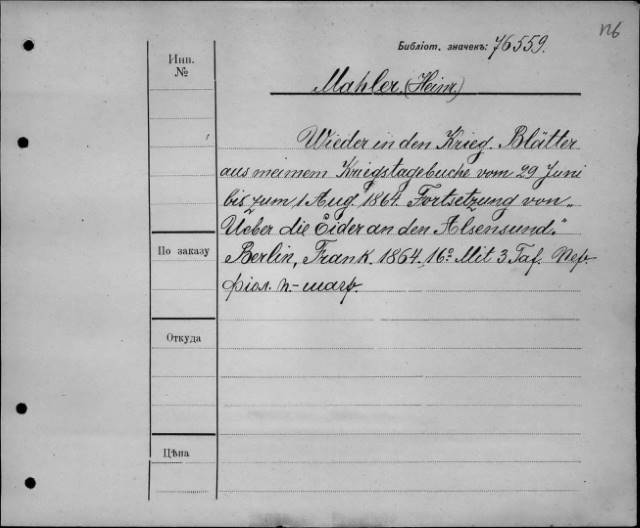 Библіот. значекъ: 76559.
Инв.
№
Mahler (Heinr)
Wieder in den Krieg. Blätter
aus meinem Kriegstagebuche vom 29 Juni
bis zum 1 Aug. 1864. Fortsetzung von „
Ueber die Eider an den Alsensund."
Berlin, Frank. 1864. 16º Mit 3. Taf.
По заказу
Откуда
Цѣна